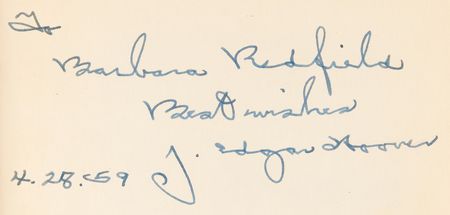 To
Barbara Redfield
Best wishes
J. Edgar Hoover
4.28.59